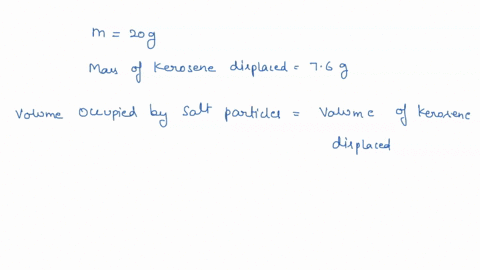 m = 20g
Mass of Kerosene displaced = 7.6 g
Volume Occupied by Salt particles = Volume of Kerosene
displaced